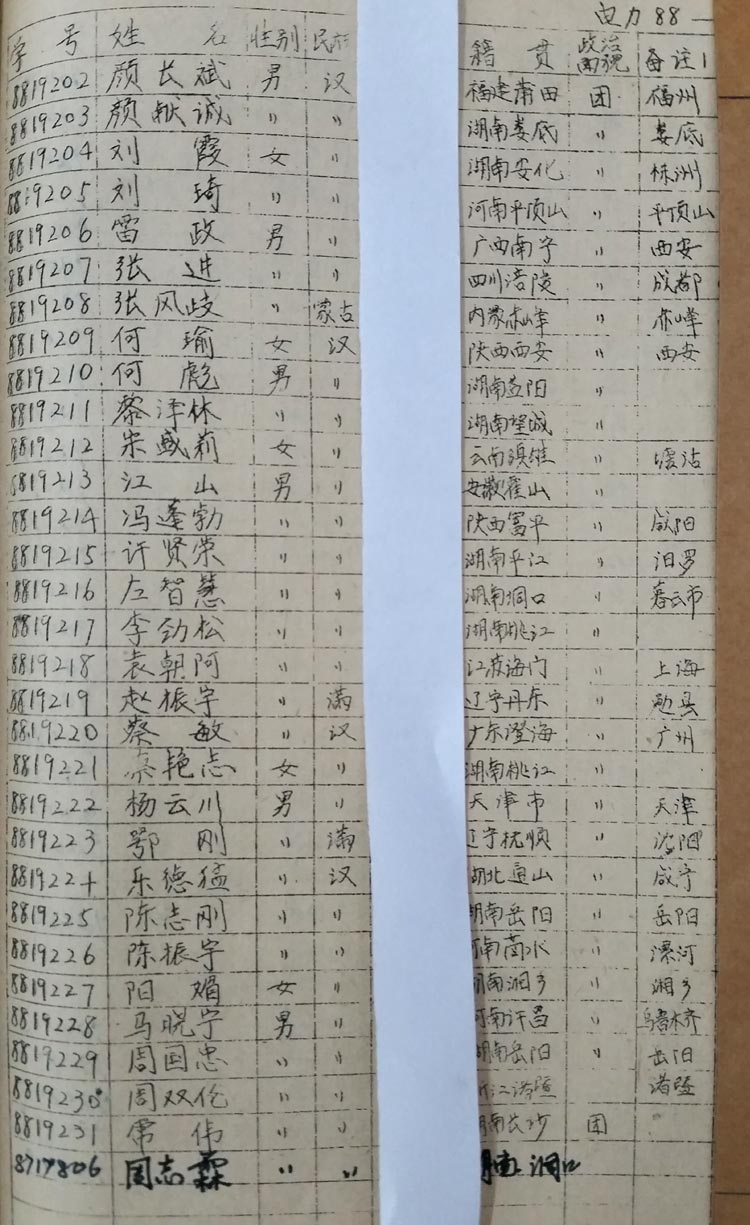 电力88
学号 姓名 性别 民族 籍贯 政治面貌 备注
8819202 颜长斌 男 汉 福建莆田 团 福州
8819203 颜献诚 〃 〃 湖南娄底 〃 娄底
8819204 刘霞 女 〃 湖南安化 〃 株州
8819205 刘琦 〃 〃 河南平顶山 〃 平顶山
8819206 雷政 男 〃 广西南宁 〃 西安
8819207 张进 〃 〃 四川涪陵 〃 成都
8819208 张风歧 〃 蒙古 内蒙赤峰 〃 赤峰
8819209 何瑜 女 汉 陕西西安 〃 西安
8819210 何彪 男 〃 湖南益阳 〃
8819211 黎泽林 〃 〃 湖南望城 〃
8819212 朱盛莉 女 〃 云南 〃
8819213 江山 男 〃 安徽霍山 〃
8819214 冯蓬勃 〃 〃 陕西富平 〃 咸阳
8819215 许贤荣 〃 〃 湖南平江 〃 汨罗
8819216 左智慧 〃 〃 湖南洞口 〃
8819217 李劲松 〃 〃 湖南桃江 〃
8819218 袁朝阿 〃 〃 江苏海门 〃 上海
8819219 赵振宇 〃 满 辽宁丹东 〃 勉县
8819220 蔡敏 〃 汉 广东澄海 〃 广州
8819221 艳志 女 〃 湖南桃江 〃
8819222 杨云川 男 〃 天津市 〃 天津
8819223 鄂刚 〃 满 辽宁抚顺 〃 沈阳
8819224 乐德猛 〃 汉 湖北通山 〃 咸宁
8819225 陈志刚 〃 〃 湖南岳阳 〃 岳阳
8819226 陈振宇 〃 〃 河南商水 〃 漯河
8819227 阳媚 女 〃 湖南湘乡 〃 湘乡
8819228 马晓宁 男 〃 河南许昌 〃 乌鲁木齐
8819229 周国忠 〃 〃 湖南岳阳 〃 岳阳
8819230 周双伦 〃 〃 浙江诸暨 诸暨
8819231 常伟 〃 〃 湖南长沙 团
8717806 周志霖 〃 〃 湖南洞口